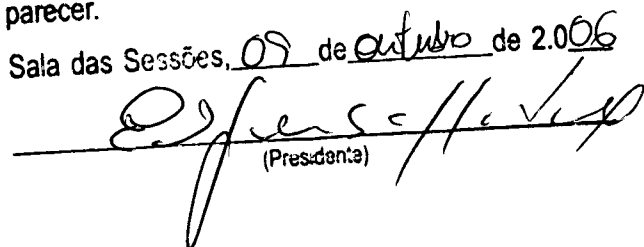 parecer.
Sala das Sessões, 09 de outubro de 2.006
(Presidente)